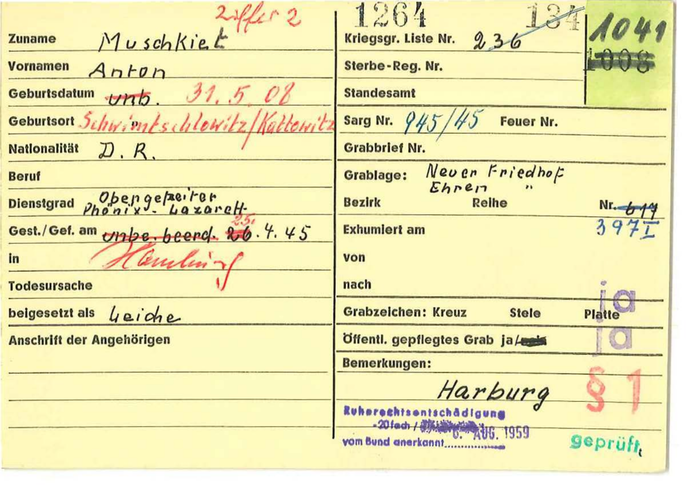 Ziffer 2
1264
134
1041
1008
Zuname Muschkiet
Vornamen Anton
Geburtsdatum unb. 31.5.08
Geburtsort Schwientschlowitz/Kattowitz
Nationalität D.R.
Beruf
Dienstgrad Obergefreiter
Phönix-Lazarett
Gest./Gef. am unbe. beerd. 26.4.45
25.
in Hamburg
Todesursache
beigesetzt als Leiche
Anschrift der Angehörigen
Kriegsgr. Liste Nr. 236
Sterbe-Reg. Nr.
Standesamt
Sarg Nr. 945/45 Feuer Nr.
Grabbrief Nr.
Grablage: Neuer Friedhof
Ehren "
Bezirk Reihe Nr. 617
Exhumiert am 397 I
von
nach
ja
Grabzeichen: Kreuz Stele Platte
Öffentl. gepflegtes Grab ja/nein ja
Bemerkungen:
§ 1
Harburg
Ruherechtsentschädigung
-20fach /
vom Bund anerkannt 6. AUG. 1959
geprüft